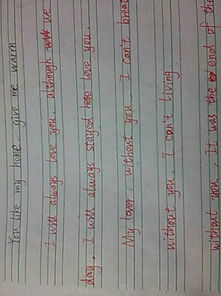 You like my home, give me warm
I will always love you although we
day. I will always stayed here love you.
My lover, without you I can't
without you I can't living.
without you It was the end of the